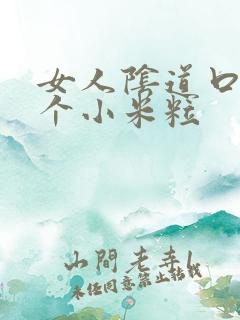 女人陰道口
个小米粒
山間老幸l
未经同意禁止转载